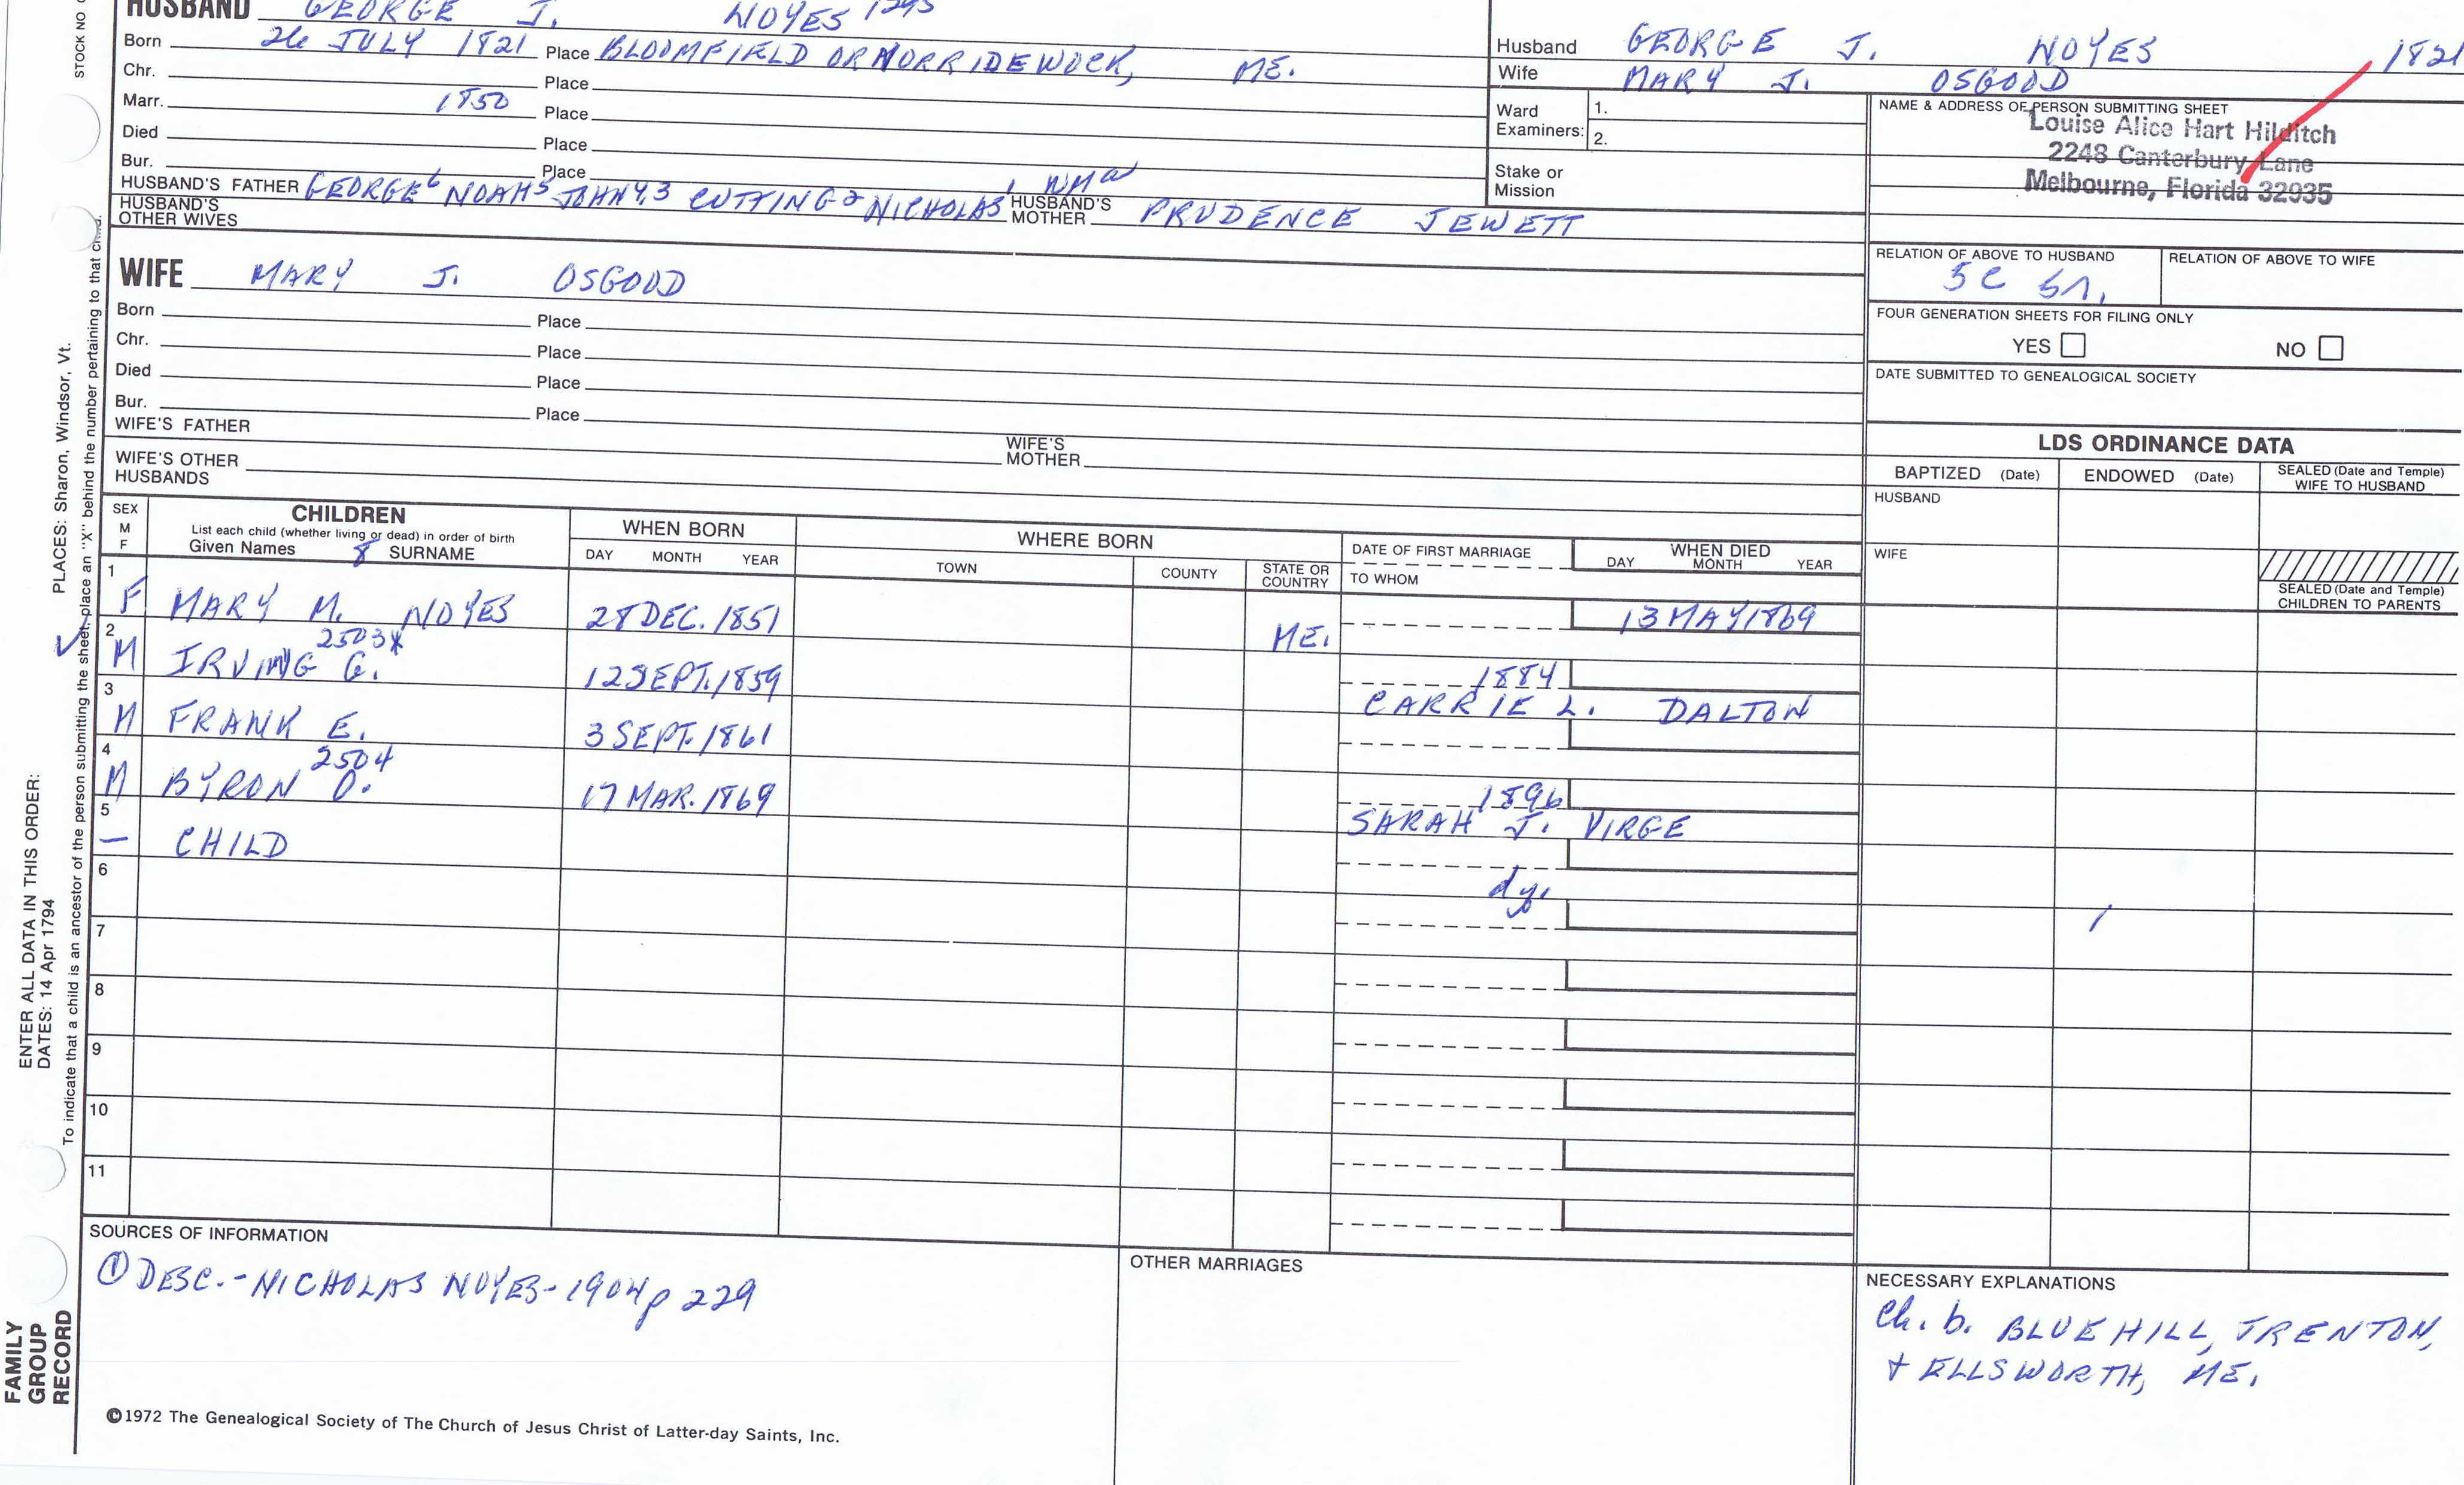 HUSBAND GEORGE J. NOYES 1293
Born 26 JULY 1821 Place BLOOMFIELD OR NORRIDEWOCK, ME.
Chr. Place
Marr. 1850 Place
Died Place
Bur. Place
HUSBAND'S FATHER GEORGE6 NOAH5 JOHN4,3 CUTTING2 NICHOLAS1 HUSBAND'S MOTHER PRUDENCE JEWETT
HUSBAND'S OTHER WIVES
WIFE MARY J. OSGOOD
Born Place
Chr. Place
Died Place
Bur. Place
WIFE'S FATHER WIFE'S MOTHER
WIFE'S OTHER HUSBANDS
Husband GEORGE J. NOYES 1821
Wife MARY J. OSGOOD
Ward Examiners: 1.
2.
Stake or Mission
NAME & ADDRESS OF PERSON SUBMITTING SHEET
Louise Alice Hart Hilditch
2248 Canterbury Lane
Melbourne, Florida 32935
RELATION OF ABOVE TO HUSBAND RELATION OF ABOVE TO WIFE
5C
FOUR GENERATION SHEETS FOR FILING ONLY
YES NO
DATE SUBMITTED TO GENEALOGICAL SOCIETY
LDS ORDINANCE DATA
BAPTIZED (Date) ENDOWED (Date) SEALED (Date and Temple) WIFE TO HUSBAND
HUSBAND
WIFE
SEALED (Date and Temple) CHILDREN TO PARENTS
SEX M F
CHILDREN
List each child (whether living or dead) in order of birth
Given Names 8 SURNAME
WHEN BORN
DAY MONTH YEAR
WHERE BORN
TOWN COUNTY STATE OR COUNTRY
DATE OF FIRST MARRIAGE
TO WHOM
WHEN DIED
DAY MONTH YEAR
1 F MARY M. NOYES 28 DEC. 1851 ME. 13 MAY 1869
2 M IRVING G. 2503X 12 SEPT. 1859 1884
CARRIE L. DALTON
3 M FRANK E. 3 SEPT. 1861
4 M BYRON O. 2504 17 MAR. 1869 1896
SARAH J. VIRGE
5 — CHILD
dy.
6
7
8
9
10
11
SOURCES OF INFORMATION
① DESC.-NICHOLAS NOYES-1904 p 229
OTHER MARRIAGES
NECESSARY EXPLANATIONS
Ch. b. BLUE HILL, TRENTON,
+ ELLSWORTH, ME.
©1972 The Genealogical Society of The Church of Jesus Christ of Latter-day Saints, Inc.
STOCK NO
PLACES: Sharon, Windsor, Vt.
ENTER ALL DATA IN THIS ORDER:
DATES: 14 Apr 1794
To indicate that a child is an ancestor of the person submitting the sheet, place an "X" behind the number pertaining to that child.
FAMILY
GROUP
RECORD